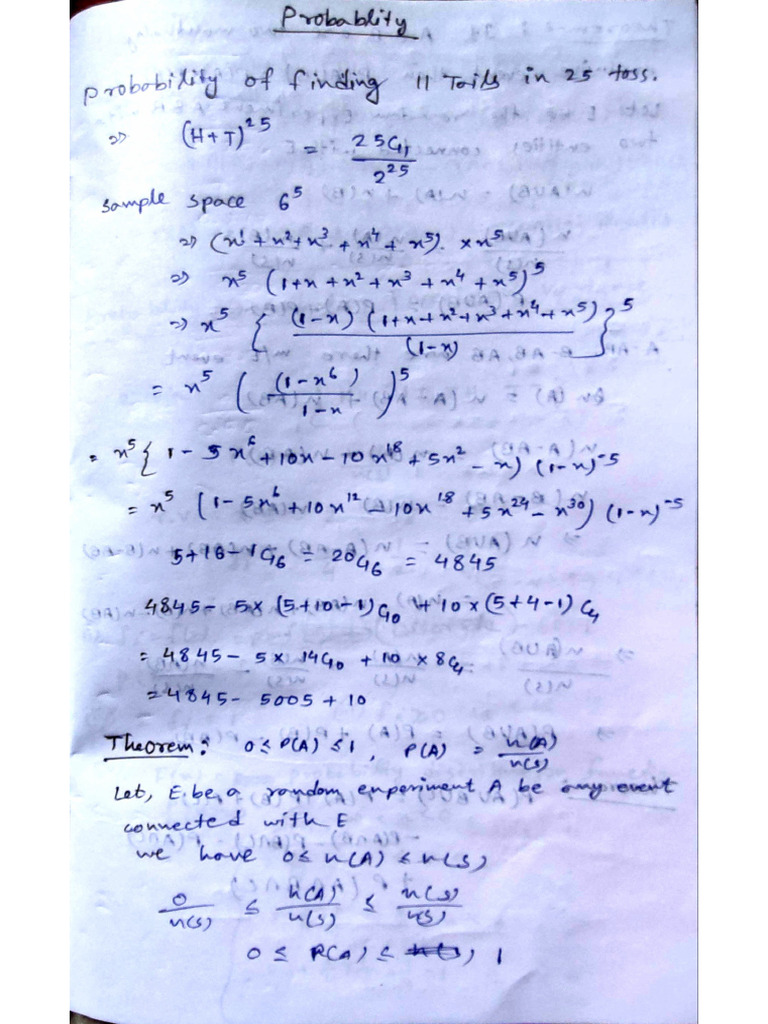 Probablity
Probability of finding 11 Tails in 25 toss.
⇒ (H+T)^25 = 25C11 / 2^25
Sample space 6^5
⇒ (x^1 + x^2 + x^3 + x^4 + x^5) × x^5
⇒ x^5 (1+x+x^2+x^3+x^4+x^5)^5
⇒ x^5 { (1-x) (1+x+x^2+x^3+x^4+x^5) / (1-x) }^5
= x^5 ( (1-x^6) / 1-x )^5
= x^5 { 1-5x^6+10x-10x^18+5x^2-x) (1-x)^-5
= x^5 (1-5x^6+10x^12-10x^18+5x^24-x^30) (1-x)^-5
5+16-1C16 = 20C16 = 4845
4845 - 5×(5+10-1)C10 + 10×(5+4-1)C4
= 4845 - 5×14C10 + 10×8C4
= 4845 - 5005 + 10
Theorem: 0≤P(A)≤1, P(A) = n(A)/n(s)
Let, E be a random experiment A be any event
connected with E
we have 0≤n(A)≤n(s)
0/n(s) ≤ n(A)/n(s) ≤ n(s)/n(s)
0 ≤ P(A) ≤ 1